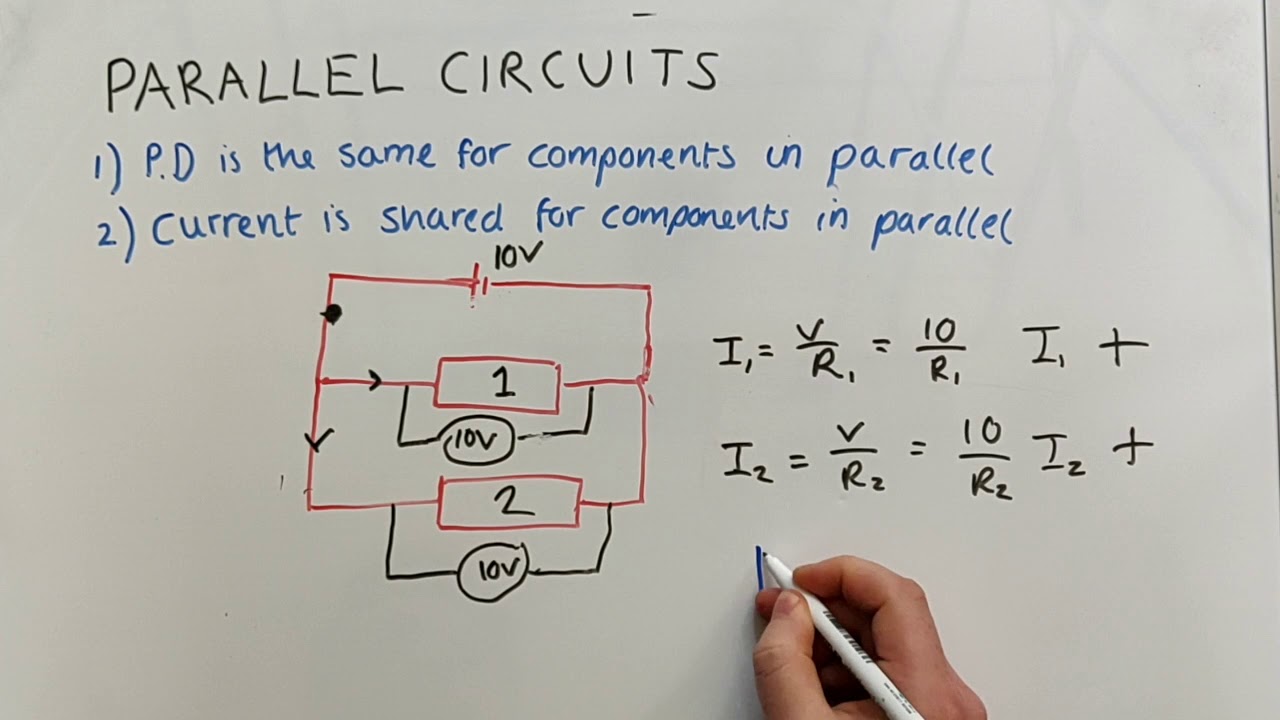 PARALLEL CIRCUITS
1) P.D is the same for components in parallel
2) Current is shared for components in parallel
10V
1
10V
2
10V
I₁ = V/R₁ = 10/R₁ I₁ +
I₂ = V/R₂ = 10/R₂ I₂ +